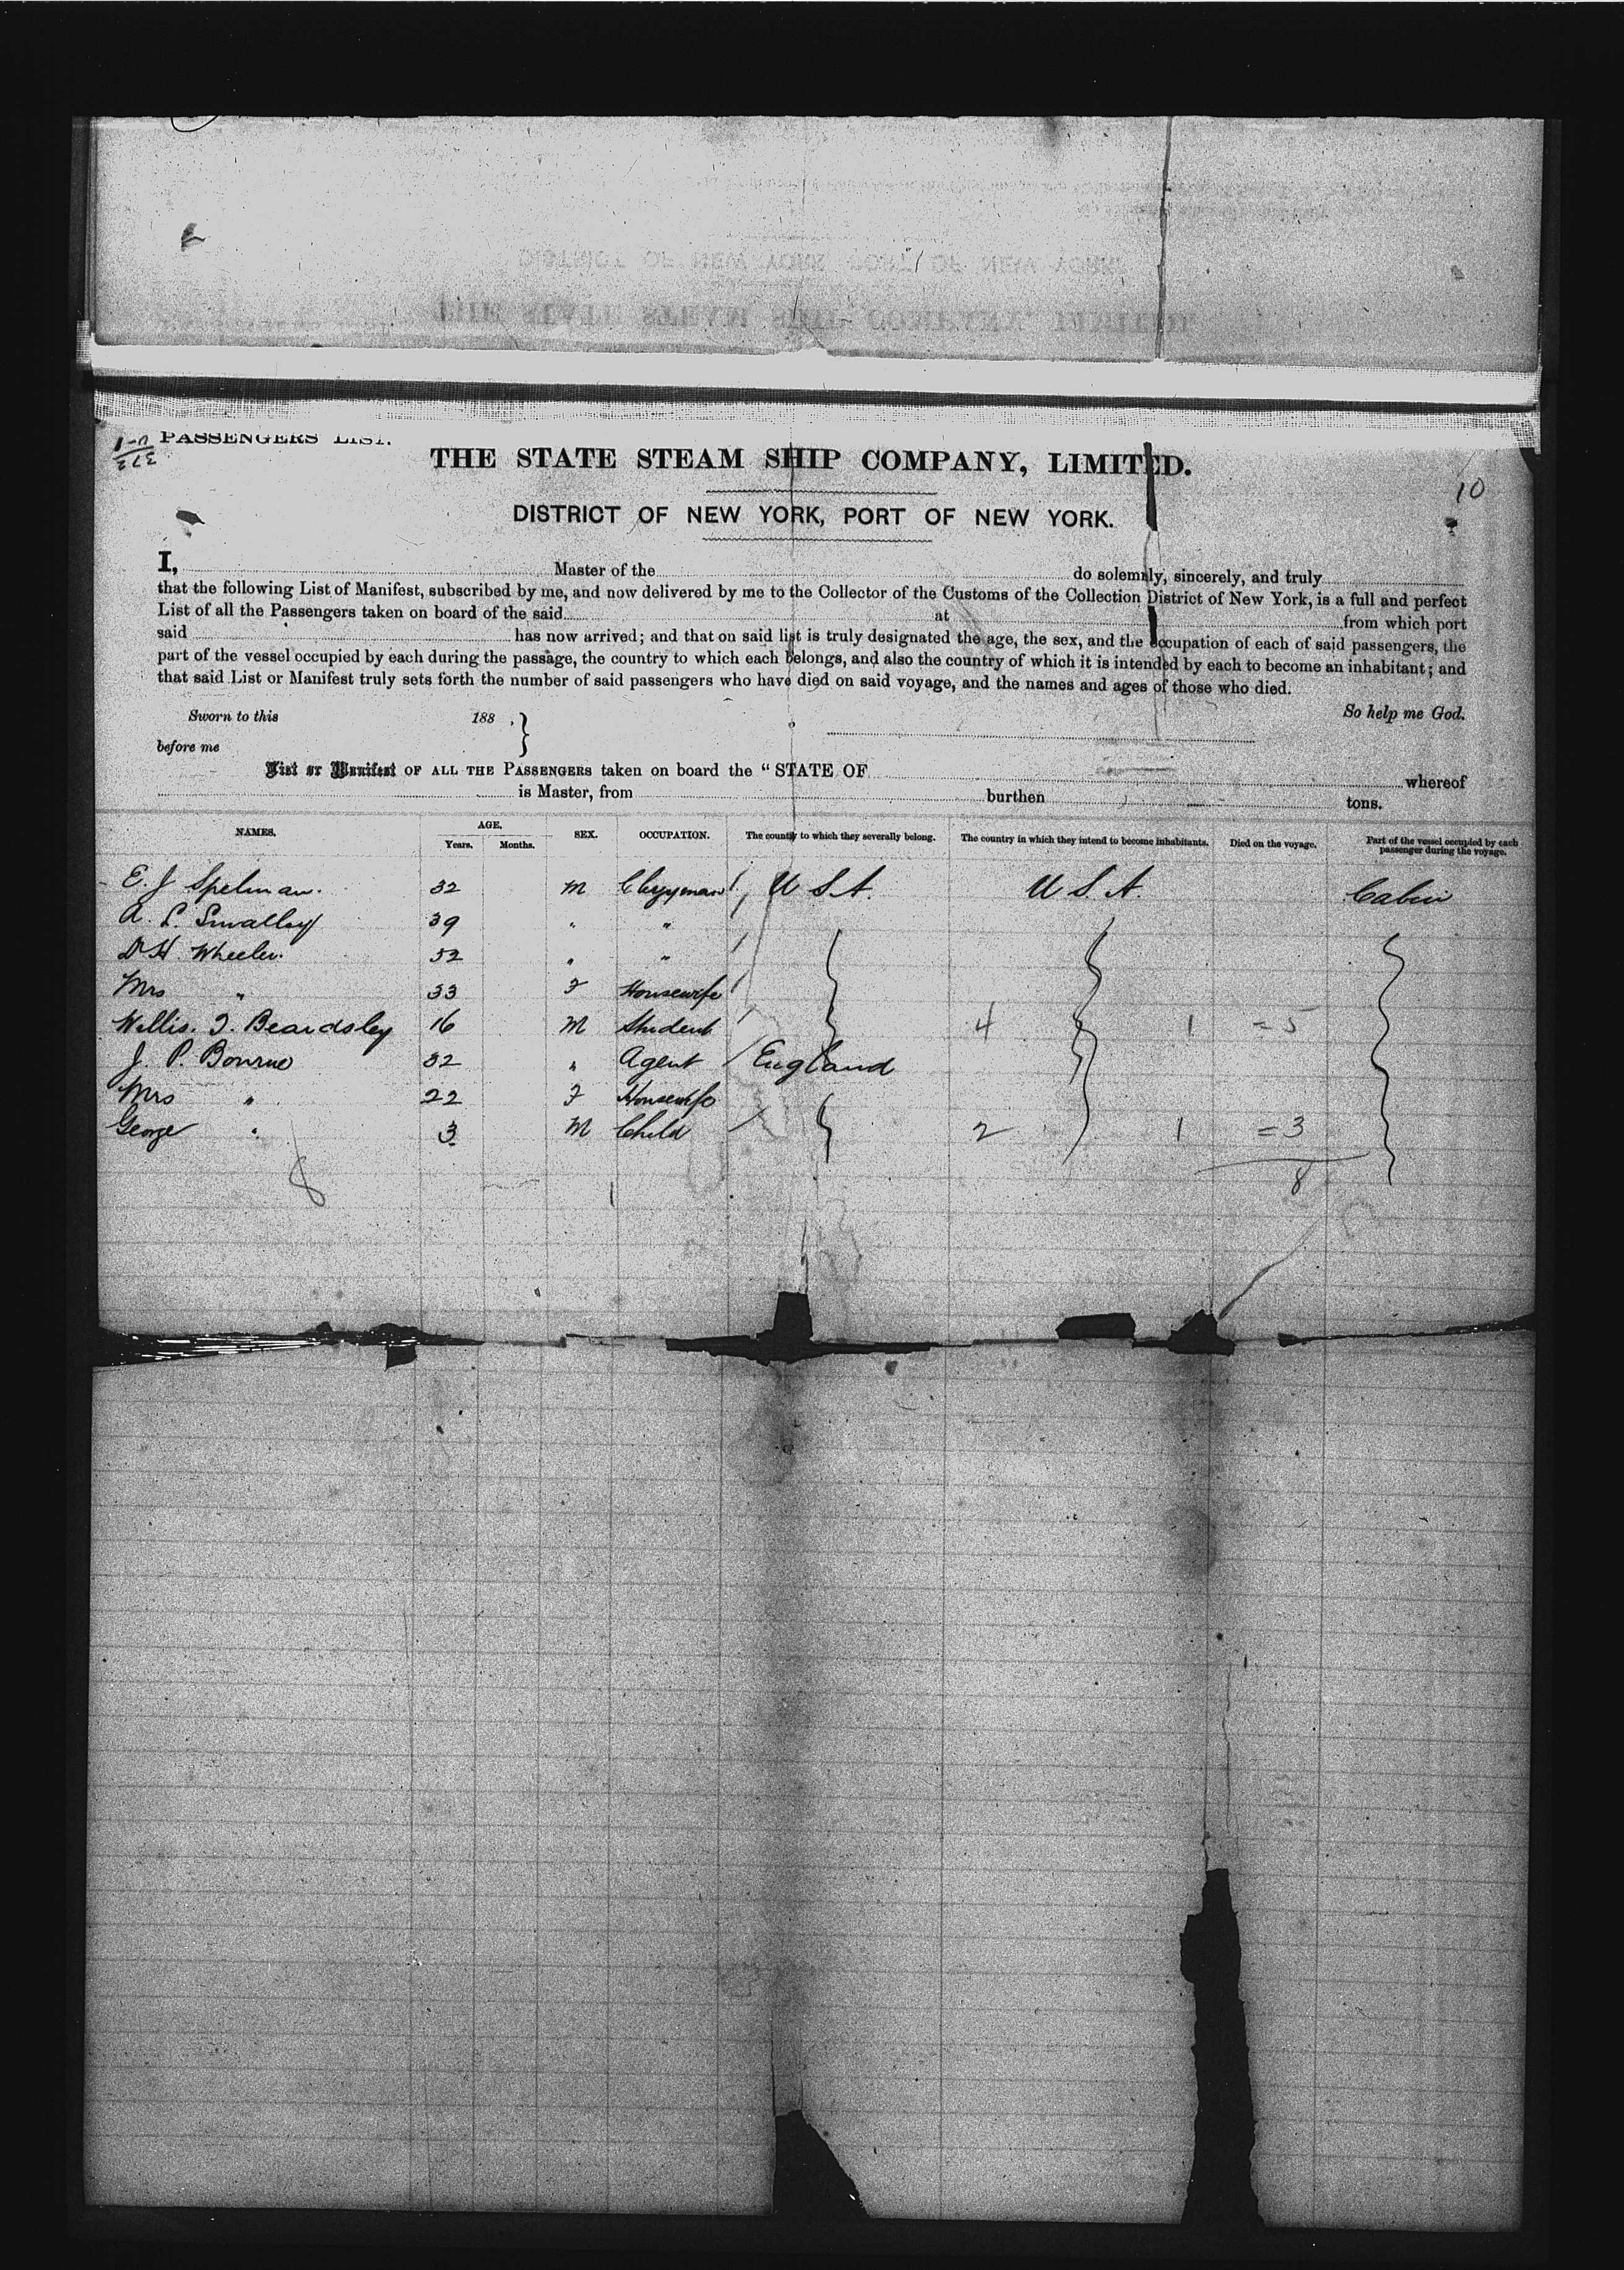 PASSENGERS LIST.
THE STATE STEAM SHIP COMPANY, LIMITED.
10
DISTRICT OF NEW YORK, PORT OF NEW YORK.
I, Master of the do solemnly, sincerely, and truly
that the following List of Manifest, subscribed by me, and now delivered by me to the Collector of the Customs of the Collection District of New York, is a full and perfect
List of all the Passengers taken on board of the said at from which port
said has now arrived; and that on said list is truly designated the age, the sex, and the occupation of each of said passengers, the
part of the vessel occupied by each during the passage, the country to which each belongs, and also the country of which it is intended by each to become an inhabitant; and
that said List or Manifest truly sets forth the number of said passengers who have died on said voyage, and the names and ages of those who died.
Sworn to this 188 . } So help me God.
before me
List or Manifest OF ALL THE PASSENGERS taken on board the "STATE OF whereof
is Master, from burthen tons.
NAMES. AGE. SEX. OCCUPATION. The country to which they severally belong. The country in which they intend to become inhabitants. Died on the voyage. Part of the vessel occupied by each passenger during the voyage.
Years. Months.
E. J Spelman. 32 M Clergyman U S.A. U S. A. Cabin
A. L. Smalley 39 " "
D H. Wheeler. 52 " "
Mrs " 33 F Housewife
Willis. I. Beardsley 16 M Student 4 1 = 5
J. P. Bourne 32 " Agent England
Mrs " 22 F Housewife
George " 3 M Child 2 1 = 3
8 8